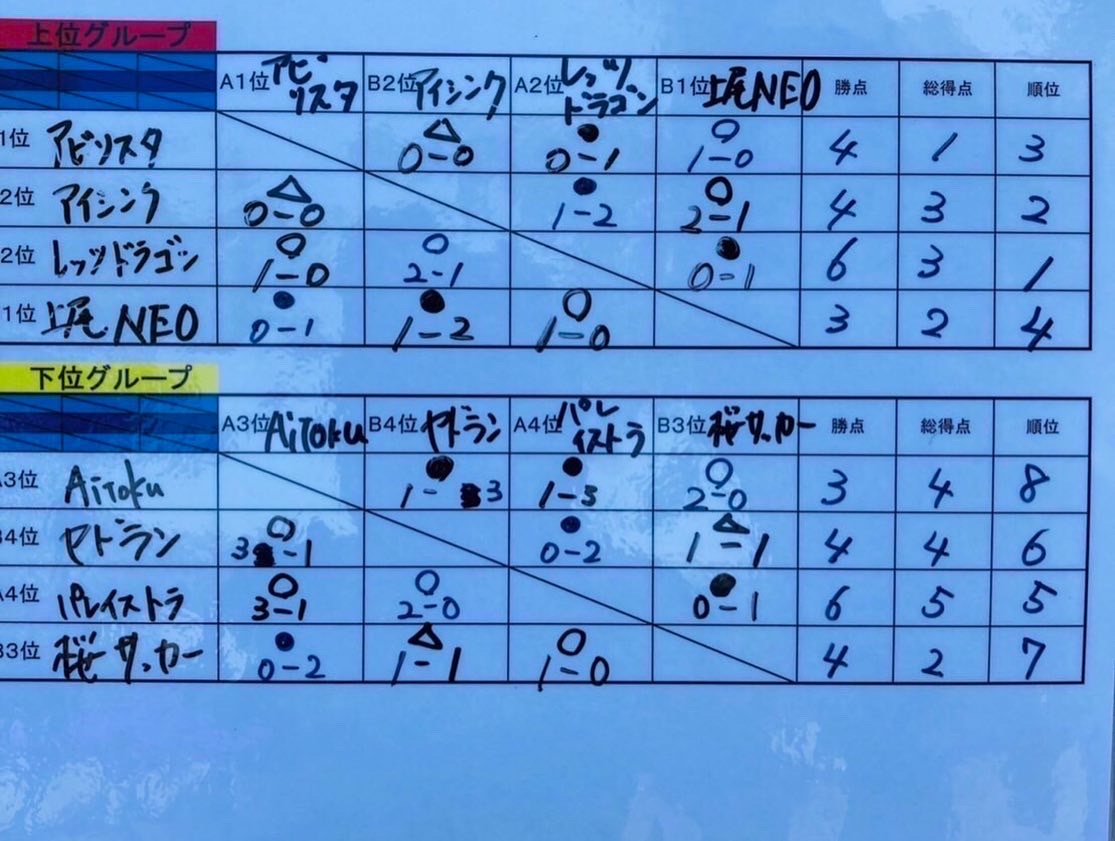 上位グループ
A1位 アビリスタ B2位 アイシンク A2位 レッツドラゴン B1位 上尾NEO 勝点 総得点 順位
1位 アビリスタ △ 0-0 ● 0-1 ○ 1-0 4 1 3
2位 アイシンク △ 0-0 ● 1-2 ○ 2-1 4 3 2
2位 レッツドラゴン ○ 1-0 ○ 2-1 ● 0-1 6 3 1
1位 上尾NEO ● 0-1 ● 1-2 ○ 1-0 3 2 4
下位グループ
A3位 AiToku B4位 ヤドラン A4位 パレイストラ B3位 桜サッカー 勝点 総得点 順位
A3位 AiToku ● 1-3 ● 1-3 ○ 2-0 3 4 8
B4位 ヤドラン ○ 3-1 ● 0-2 △ 1-1 4 4 6
A4位 パレイストラ ○ 3-1 ○ 2-0 ● 0-1 6 5 5
B3位 桜サッカー ● 0-2 △ 1-1 ○ 1-0 4 2 7